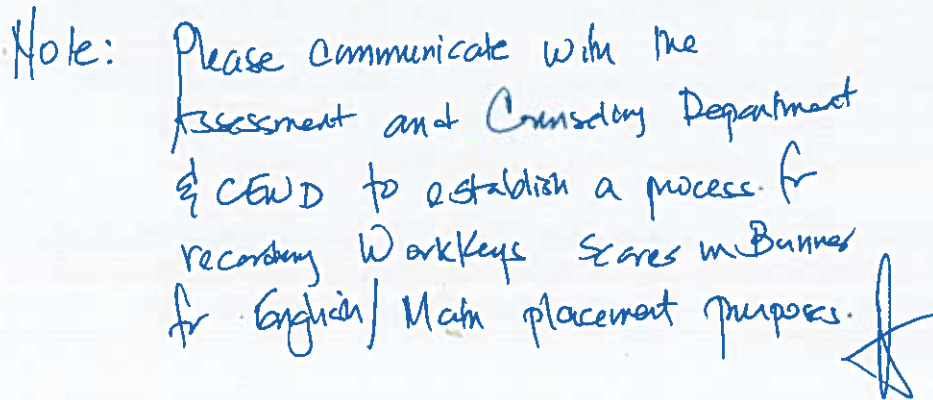 Note: Please communicate with the
Assessment and Counseling Department
& CEWD to establish a process for
recording WorkKeys Scores in Banner
for English/Math placement purposes.